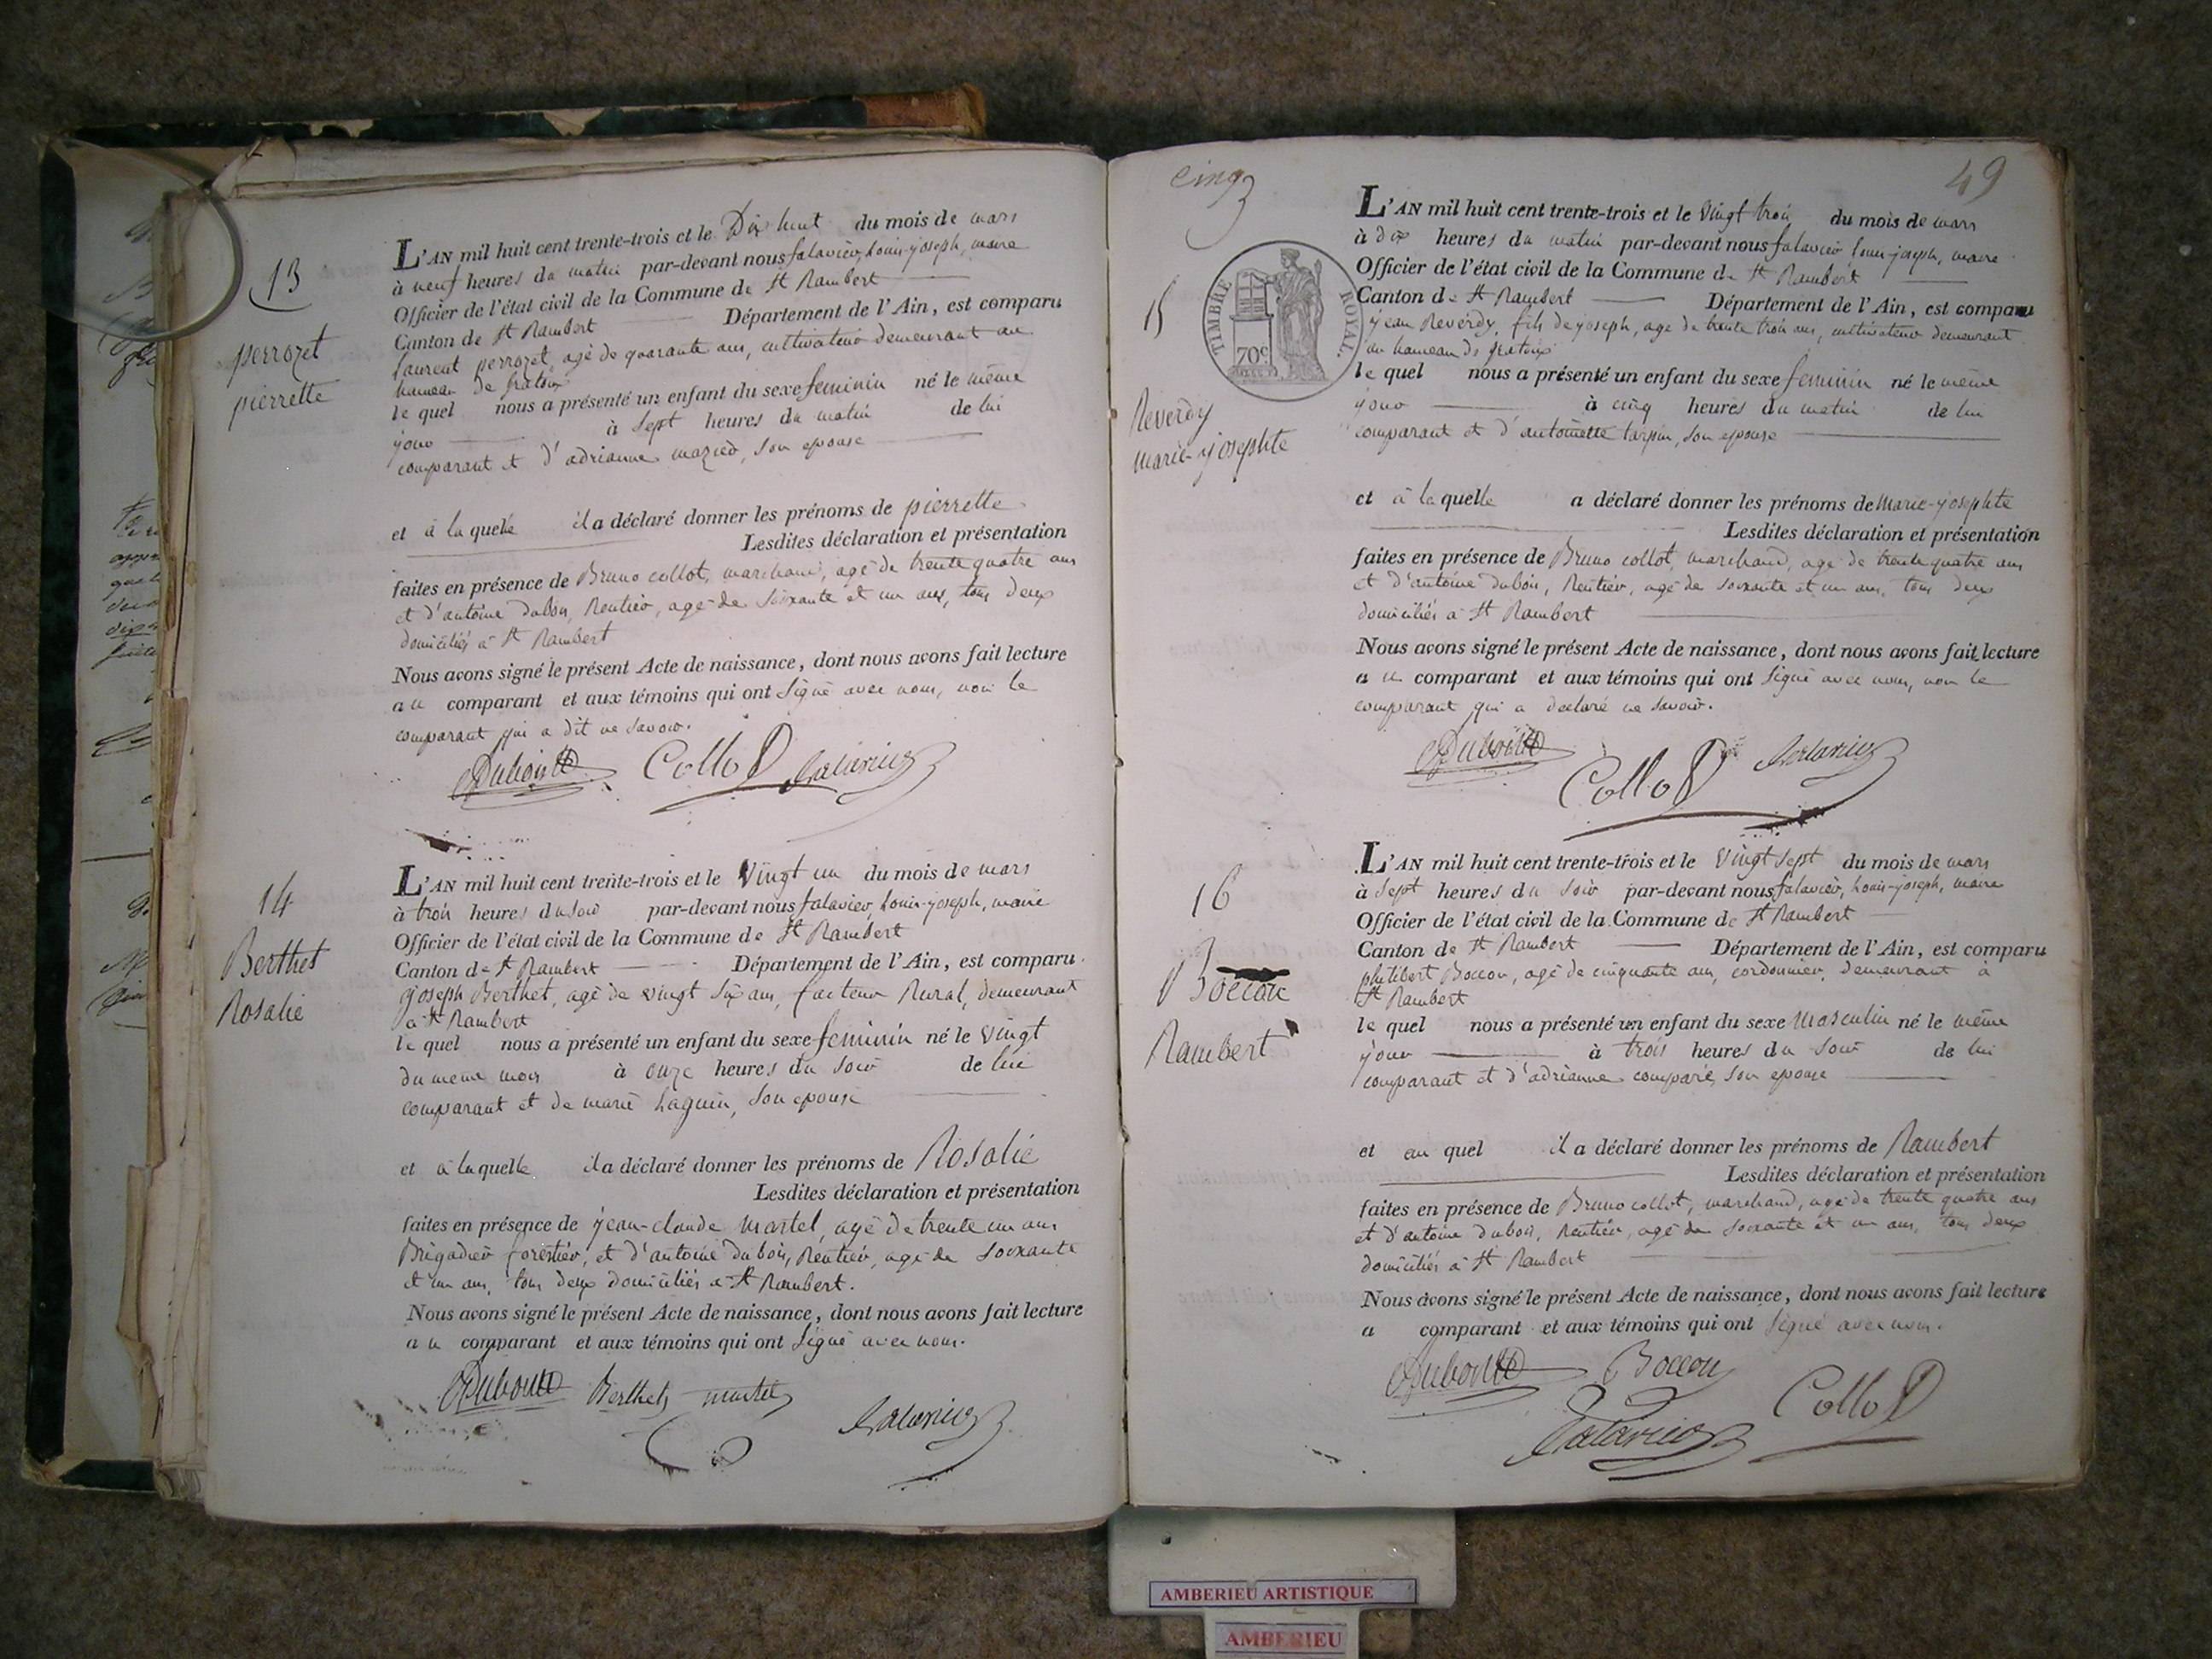 13
perrozet
pierrette
L'AN mil huit cent trente-trois et le Dix huit du mois de mars
à neuf heures du matin par-devant nous falavier, louis-joseph, maire
Officier de l'état civil de la Commune de St Rambert
Canton de St Rambert Département de l'Ain, est comparu
laurent perrozet, agé de quarante ans, cultivateur demeurant au
hameau de
le quel nous a présenté un enfant du sexe feminin né le même
jour à sept heures du matin de lui
comparant et d'adrianne mazuer, son epouse
et à la quelle il a déclaré donner les prénoms de pierrette
Lesdites déclaration et présentation
faites en présence de Bruno collot, marchand, agé de trente quatre ans
et d'antoine dubois, Rentier, agé de soixante et un ans, tous deux
domiciliés à St Rambert
Nous avons signé le présent Acte de naissance, dont nous avons fait lecture
au comparant et aux témoins qui ont signé avec nous, non le
comparant qui a dit ne savoir.
Dubois Collot falavier
14
Berthet
Rosalie
L'AN mil huit cent trente-trois et le Vingt un du mois de mars
à trois heures du soir par-devant nous falavier, louis-joseph, maire
Officier de l'état civil de la Commune de St Rambert
Canton de St Rambert Département de l'Ain, est comparu
joseph Berthet, agé de vingt six ans, facteur Rural, demeurant
à St Rambert
le quel nous a présenté un enfant du sexe feminin né le vingt
du même mois à onze heures du soir de lui
comparant et de marie laguin, son epouse
et à la quelle il a déclaré donner les prénoms de Rosalie
Lesdites déclaration et présentation
faites en présence de jean-claude martel, agé de trente un ans
Brigadier forestier, et d'antoine dubois, Rentier, agé de soixante
et un ans, tous deux domiciliés à St Rambert.
Nous avons signé le présent Acte de naissance, dont nous avons fait lecture
au comparant et aux témoins qui ont signé avec nous.
Dubois Berthet martel falavier
cinq
49
TIMBRE ROYAL.
70c
15
Reverdy
marie-josephte
L'AN mil huit cent trente-trois et le Vingt trois du mois de mars
à dix heures du matin par-devant nous falavier louis-joseph, maire
Officier de l'état civil de la Commune de St Rambert
Canton de St Rambert Département de l'Ain, est comparu
jean Reverdy, fils de joseph, agé de trente trois ans, cultivateur demeurant
au hameau de
le quel nous a présenté un enfant du sexe feminin né le même
jour à cinq heures du matin de lui
comparant et d'antoinette tarpin, son epouse
et à la quelle a déclaré donner les prénoms de marie-josephte
Lesdites déclaration et présentation
faites en présence de Bruno collot, marchand, agé de trente quatre ans
et d'antoine dubois, Rentier, agé de soixante et un ans, tous deux
domiciliés à St Rambert
Nous avons signé le présent Acte de naissance, dont nous avons fait lecture
au comparant et aux témoins qui ont signé avec nous, non le
comparant qui a declaré ne savoir.
Dubois Collot falavier
16
Boccon
Rambert
L'AN mil huit cent trente-trois et le Vingt sept du mois de mars
à sept heures du soir par-devant nous falavier, louis-joseph, maire
Officier de l'état civil de la Commune de St Rambert
Canton de St Rambert Département de l'Ain, est comparu
philibert Boccon, agé de cinquante ans, cordonnier, demeurant à
St Rambert
le quel nous a présenté un enfant du sexe masculin né le même
jour à trois heures du soir de lui
comparant et d'adrianne son epouse
et au quel il a déclaré donner les prénoms de Rambert
Lesdites déclaration et présentation
faites en présence de Bruno collot, marchand, agé de trente quatre ans
et d'antoine dubois, Rentier, agé de soixante et un ans, tous deux
domiciliés à St Rambert
Nous avons signé le présent Acte de naissance, dont nous avons fait lecture
a comparant et aux témoins qui ont signé avec nous.
Dubois Boccon
falavier Collot
AMBERIEU ARTISTIQUE
AMBERIEU